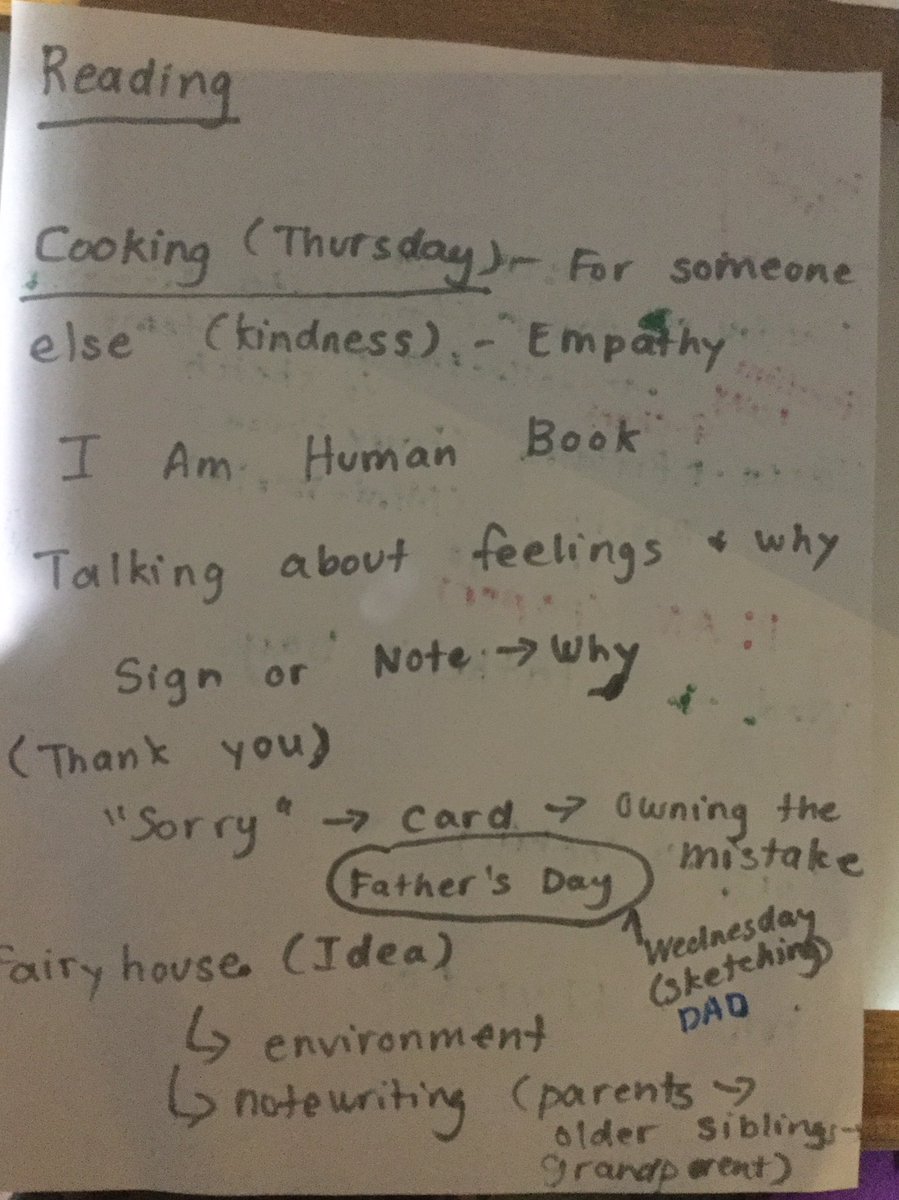 Reading
Cooking (Thursday) - For someone
else (kindness). - Empathy
I Am Human Book
Talking about feelings & why
Sign or Note → Why
(Thank you)
"Sorry" → card → owning the
mistake
Father's Day
Wednesday
(sketching)
DAD
Fairy house. (Idea)
↳ environment
↳ notewriting (parents →
older siblings →
grandparent)